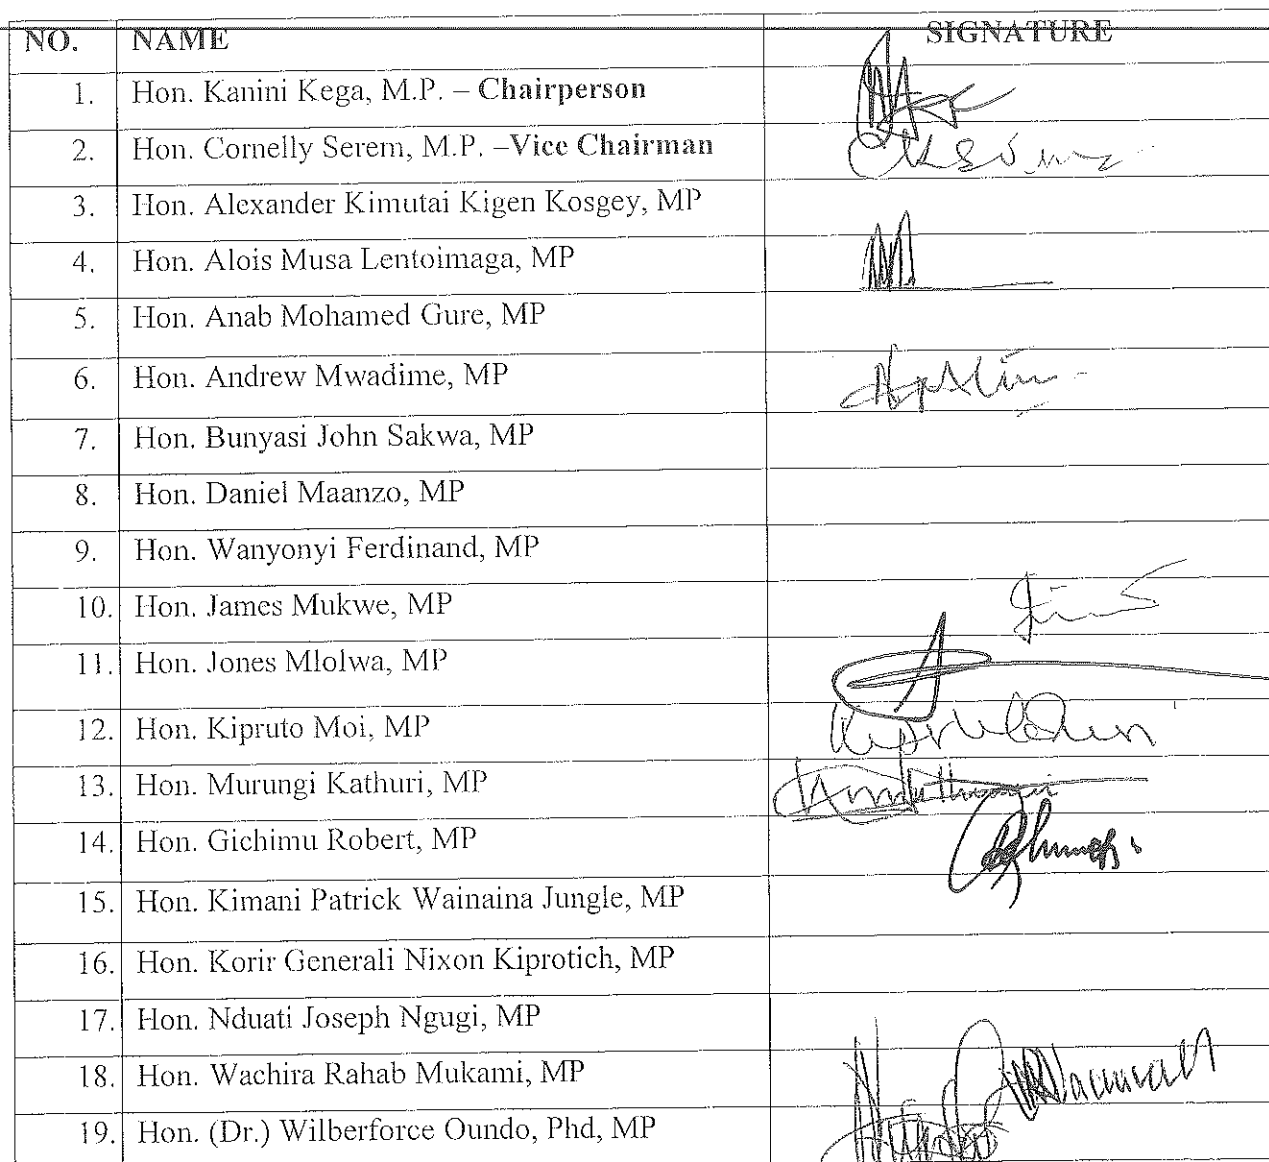 NO. NAME SIGNATURE
1. Hon. Kanini Kega, M.P. – Chairperson
2. Hon. Cornelly Serem, M.P. –Vice Chairman
3. Hon. Alexander Kimutai Kigen Kosgey, MP
4. Hon. Alois Musa Lentoimaga, MP
5. Hon. Anab Mohamed Gure, MP
6. Hon. Andrew Mwadime, MP
7. Hon. Bunyasi John Sakwa, MP
8. Hon. Daniel Maanzo, MP
9. Hon. Wanyonyi Ferdinand, MP
10. Hon. James Mukwe, MP
11. Hon. Jones Mlolwa, MP
12. Hon. Kipruto Moi, MP
13. Hon. Murungi Kathuri, MP
14. Hon. Gichimu Robert, MP
15. Hon. Kimani Patrick Wainaina Jungle, MP
16. Hon. Korir Generali Nixon Kiprotich, MP
17. Hon. Nduati Joseph Ngugi, MP
18. Hon. Wachira Rahab Mukami, MP
19. Hon. (Dr.) Wilberforce Oundo, Phd, MP